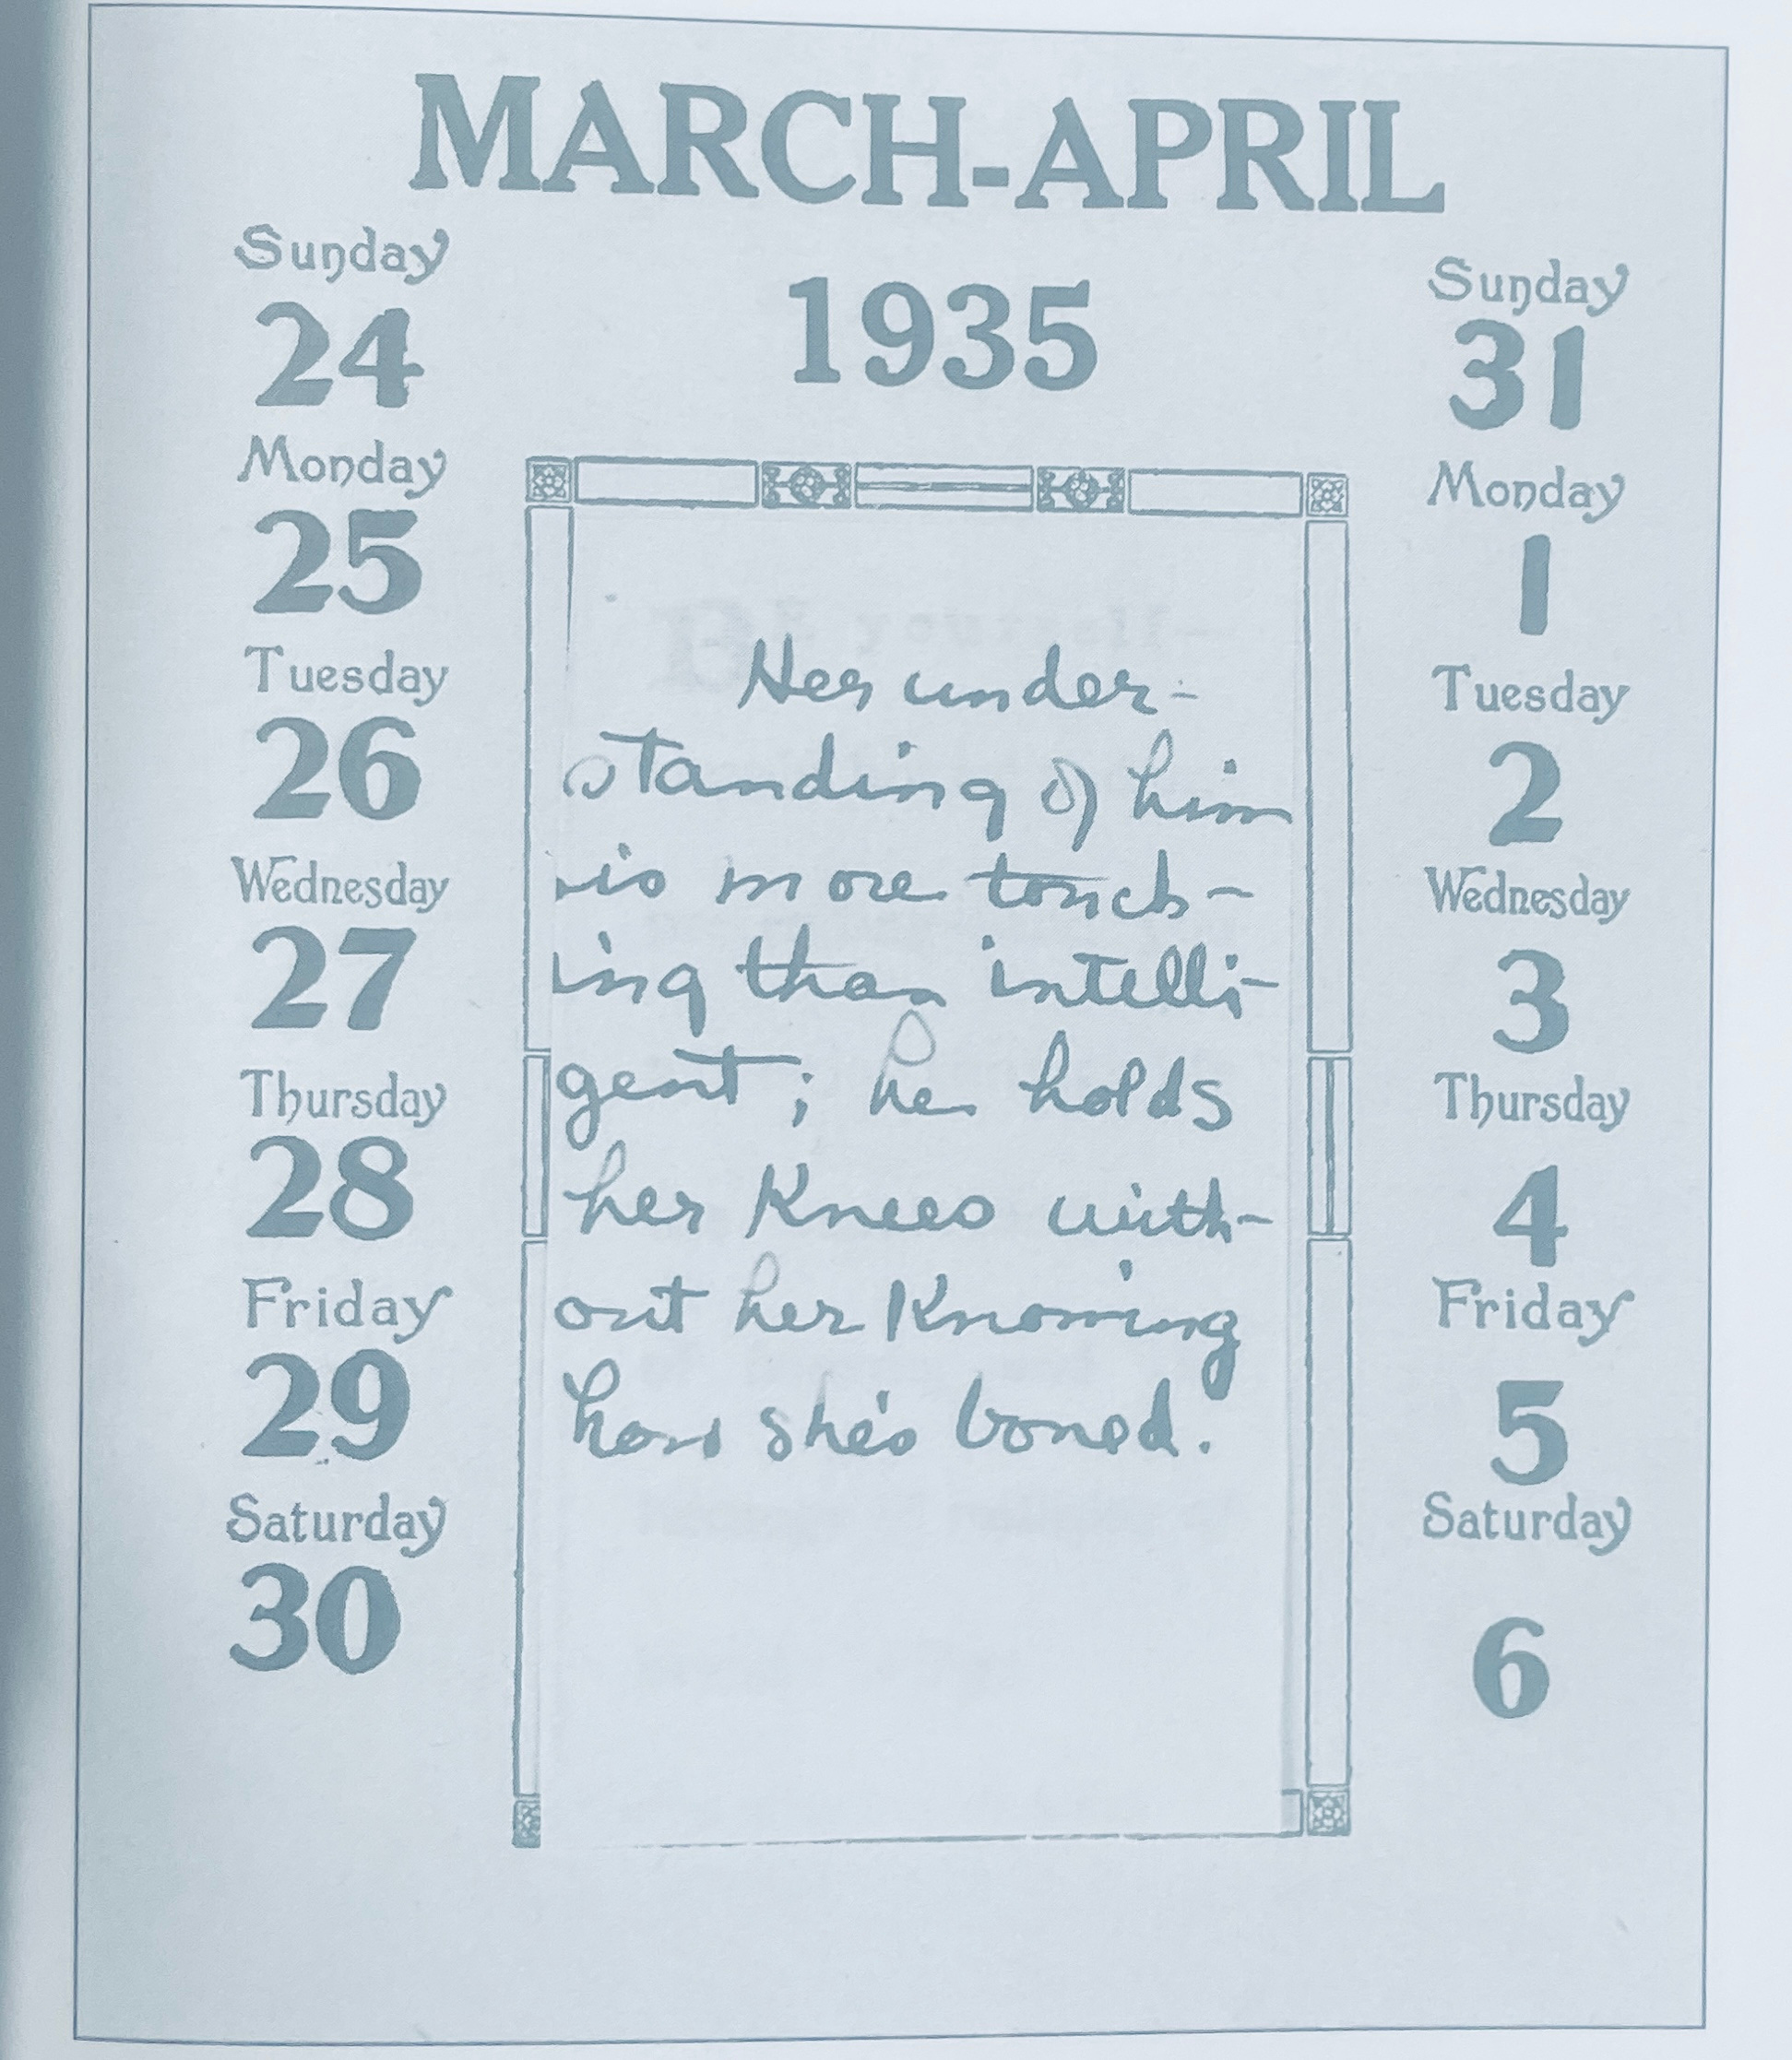 MARCH-APRIL
1935
Sunday
24
Monday
25
Tuesday
26
Wednesday
27
Thursday
28
Friday
29
Saturday
30
Her under-
standing of him
is more touch-
ing than intelli-
gent; he holds
her Knees with-
out her Knowing
how she's boned.
Sunday
31
Monday
1
Tuesday
2
Wednesday
3
Thursday
4
Friday
5
Saturday
6